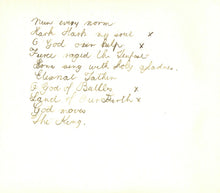 New every morn
Hark Hark my soul x
O God our help x
Fierce raged the Tempest
Come sing with holy gladness.
Eternal Father
O God of Battles x
Land of Our Birth x
God moves
The King.